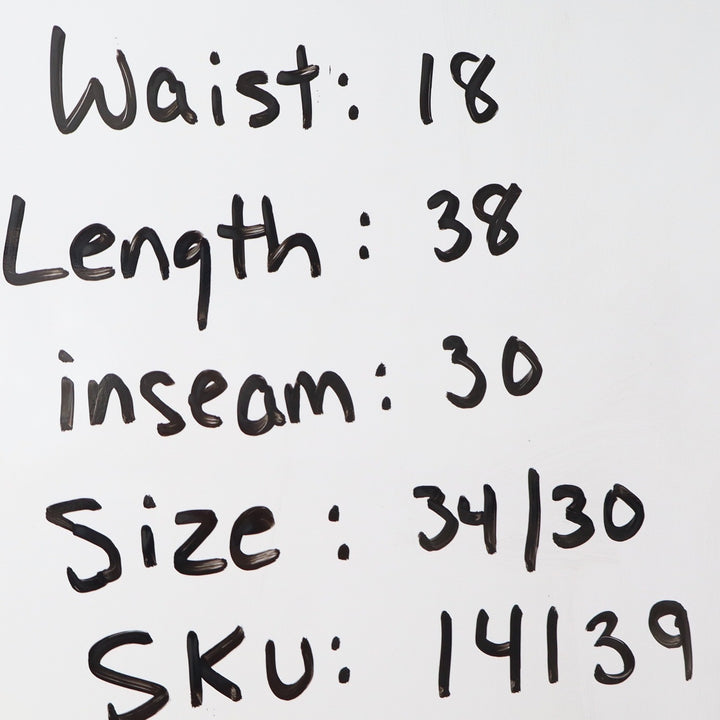 Waist: 18
Length: 38
inseam: 30
Size: 34/30
SKU: 14139